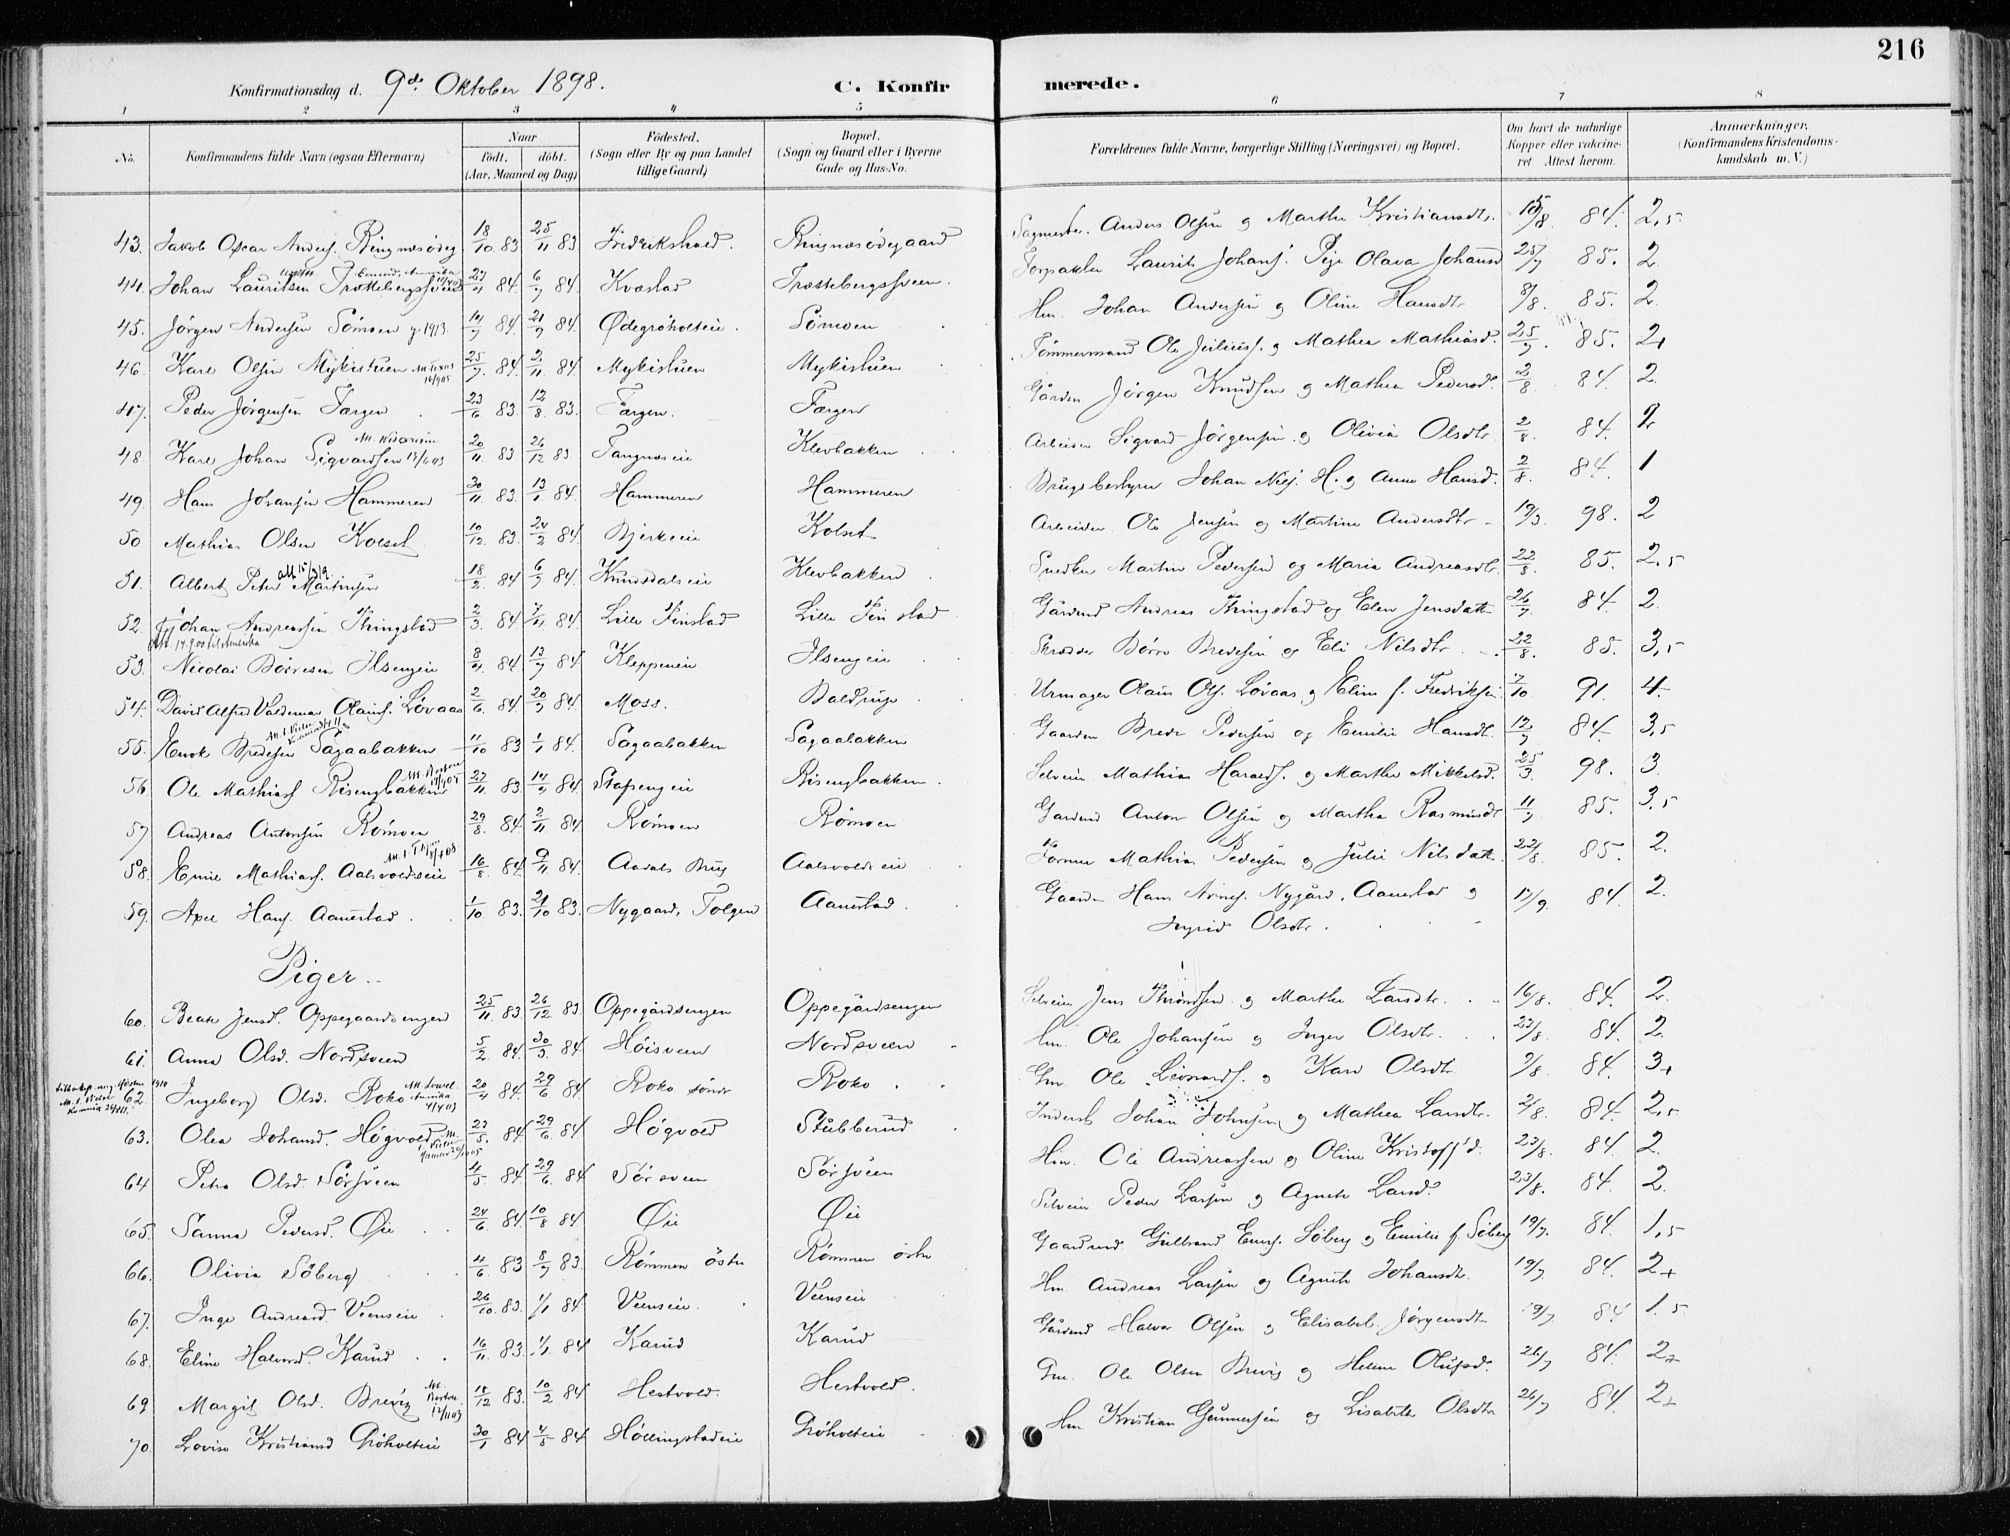 216
Konfirmationsdag d. 9de Oktober 1898. C. Konfirmerede.
1 2 3 4 5 6 7 8
No. Konfirmandens fulde Navn (ogsaa Efternavn) Naar födt. döbt. (Aar, Maaned og Dag) Födested. (Sogn eller By og paa Landet tillige Gaard) Bopæl. (Sogn og Gaard eller i Byerne Gade og Hus-No. Forældrenes fulde Navne, borgerlige Stilling (Næringsvei) og Bopæl. Om havt de naturlige Kopper eller vakcineret. Attest herom. Anmærkninger. (Konfirmandens Kristendomskundskab m. V.)
43. Jakob Oscar Anders. Ringnæsödeg 18/10 83 25/11 83 Frederikshald. Ringnæsödegaard Anders Olsen og Marthe Kristiansdtr. /8 84. 2,5
44. Johan Lauritsen Trættebergsveen 84. 6/7 84. Kværstad Trættebergsveen. Laurits Johans. Olava Johansd 25/7 85. 2
45. Jörgen Andersen Sömoen 1913. 84. 21/9 84. Ödegröholteie. Sömoen Hm. Johan Andersen og Oline Hansdtr 8/8 85. 2
46. Karl Olsen Mykistuen 25/7 84. 2/11 84. Mykistuen Mykistuen Tömmermand Ole Juliuss. og Mathea Mathiasd. 25/7 85. 2+
47. Peder Jörgensen Færgen 23/6 83. 12/8 83. Færgen. Færgen Gårdm Jörgen Knudsen og Mathea Pedersd. 2/8 84. 2.
48 Karl Johan Sigvardsen 20/11 83 26/12 83. Tangnæseie Klevbakken Arbeider Sigvard Jörgensen og Olivia Olsdtr. 2/8. 84.
49. Hans Johansen Hammeren 30/11 83. 13/1 84. Hammeren Hammeren Brugsbestyrer Johan H. og Anne Hansd. 2/8. 84. 1
50 Mathias Olsen Kolset 10/12 83. 24/2 84. Bjerkeeie Kolset Arbeider Ole Jensen og Martine Andersdtr 19/3. 98. 2
51. Albert Peter Martinsen 18/2 84 6/7 84. Knudsdalseie Klevbakken Snedker Martin Pedersen og Maria Andreasdtr. 22/8 85. 2,5
52. Johan Andreassen Thingstad 2/3 84 84. Lille Finstad Lille Finstad Gårdmd Andreas Thingstad og Elen Jensdatr 26/7 84. 2.
53. Nicolai Börresen Ilsengeie 84 13/7 84. Kleppeneie Ilsengeie Skrædder Börre Bredesen og Eli Nilsdtr. 22/8. 85. 3,5
54. David Alfred Valdemar Olaus. Lövaas 2/6 84. 20/7 84. Moss. Baldrup Urmager Olaus Ols. Lövaas og Elina f. Fredriksen 7/10 91. 4.
55. Enok Bredesen Sagaabakken 11/10 83 1/1 84. Sagaabakken Sagaabakken Gaardm Brede Pedersen og Emilie Hansdtr. 12/7 84. 3,5
56. Ole Mathias. Risengbakken 27/11 83 84 Stafsengeie Risengbakken. Selveier Mathias Haralds. og Marthe Mikkelsd. 25/3. 98. 3.
57 Andreas Antonsen Römoen 29/8. 84. 2/11 84 Römoen Römoen Gaardmd Anton Olsen og Martha Rasmusdtr 11/7 85. 3,5
58. Emil Mathias. Aalsvoldseie 16/8 84 9/11 84. Aadals Brug Aalsvoldseie Former Mathias Pedersen og Julie Nilsdatr. 22/8. 85. 2.
59. Axel Hans. Aanestad 1/10 83. 21/10 83. Nygaard, Tolgen Aanestad. Gaardm Hans Arnes. Nygård, Aanestad og 17/9. 84. 2.
Ingrid Olsdtr.
Piger.
60. Beate Jensd. Oppegaardsengen 25/11. 83. 26/12 83. Oppegårdsengen Oppegårdsengen Selveier Jens Throndsen og Marthe Larsdtr. 16/8. 84. 2.
61. Anna Olsd. Nordsveen 5/2 84. 30/3 84. Höisveen Nordsveen Hm. Ole Johansen og Inger Olsdtr. 23/8 84. 2.
62. Ingeborg Olsd. Roko 20/4 84. 29/6 84. Roko söndr Roko Gm. Ole Leonards. og Kari Olsdtr /8 84. 3+
63. Olea Johansd. Högvold 23/5. 84. 29/6 84 Högvold Stubberud Inderst Johan Johnsen og Mathea Larsdtr. 2/8. 84. 2,5
64 Petra Olsd. Sörsveen 4/5 84. 29/6. 84. Sörsveen Sörsveen Hm. Ole Andreassen og Oline Kristoffsd. 23/8. 84. 2.
65. Sanna Pedersd. Öie 24/6 84. 10/8 84 Öie Öie Selveier Peder Larsen og Agnete Larsd. 23/8. 84. 2.
66. Olivia Söberg 4/6 83 8/7 83. Römmen östre Römmen östre Gaardmd Gulbrand Söberg og Emilie f. Söberg 19/7. 84. 1,5
67. Inga Andreasd. Veenseie 26/10. 83. 1/1 84 Veenseie. Veenseie Hm Andreas Larsen og Agnete Johansdtr. 19/7 84. 2+
68. Eline Halvorsd. Karud 16/11. 83. 1/1. 84 Karud Karud Gårdmd Halvor Olsen og Elisabet Jörgensdtr 19/7 84 1.5
69 Margit Olsd. Brevig 18/12 83. 10/2 84 Hestvold. Hestvold. Gm. Ole Olsen Brevig og Helene Olufsd. 26/7 84. 2+
70. Lovise Kristiansd Gröholteie 30/1 84 4/5 84 Höllingstadeie Gröholteie Hm Kristian Gunnersen og Lisabeth Olsdtr 26/7 84. 2+